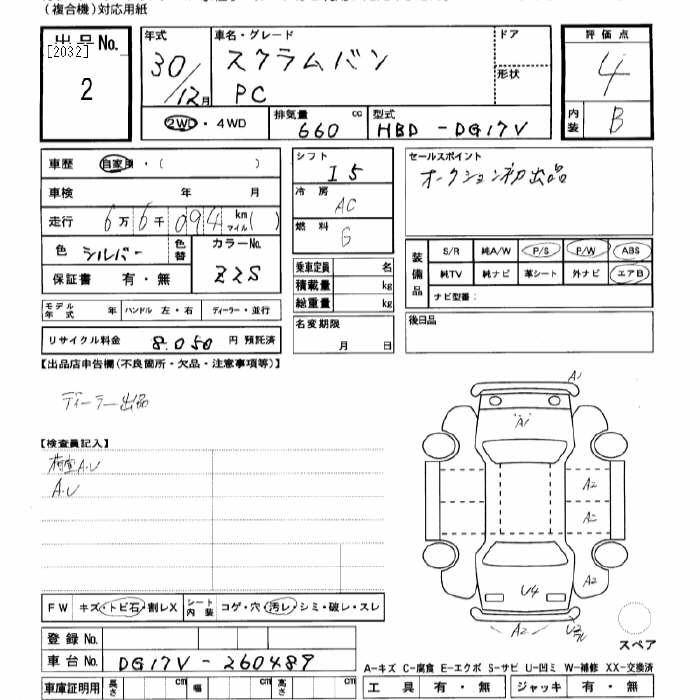 （複合機）対応用紙
出品No. 年式 車名・グレード ドア 評価点
[2032] 30/12月 スクラムバン 4
2 PC 形状
2WD・4WD 排気量 660 cc 型式 HBD-DG17V 内装 B
車歴 自家用・（ ） シフト I5 セールスポイント
車検 年 月 冷房 AC オークション初出品
走行 6万6千094 km マイル（ ） 燃料 G
色 シルバー 色替 カラーNo. Z2S
乗車定員 名 装備品 S/R 純A/W P/S P/W ABS
保証書 有・無 積載量 kg 純TV 純ナビ 革シート 外ナビ エアB
総重量 kg ナビ型番：
モデル年式 年 ハンドル 左・右 ディーラー・並行
名変期限 月 日 後日品
リサイクル料金 8.050 円 預託済
【出品店申告欄（不良箇所・欠品・注意事項等）】
ディーラー出品
A1
A1
【検査員記入】
荷室A.U
A.U
A2
A2
A2
U4
A2
FW キズ・トビ石・割レX シート内装 コゲ・穴・汚レ・シミ・破レ・スレ
登録No. スペア
車台No. DG17V-260489
A-キズ C-腐食 E-エクボ S-サビ U-凹ミ W-補修 XX-交換済
車庫証明用 長さ cm 幅 cm 高さ cm 工具 有・無 ジャッキ 有・無